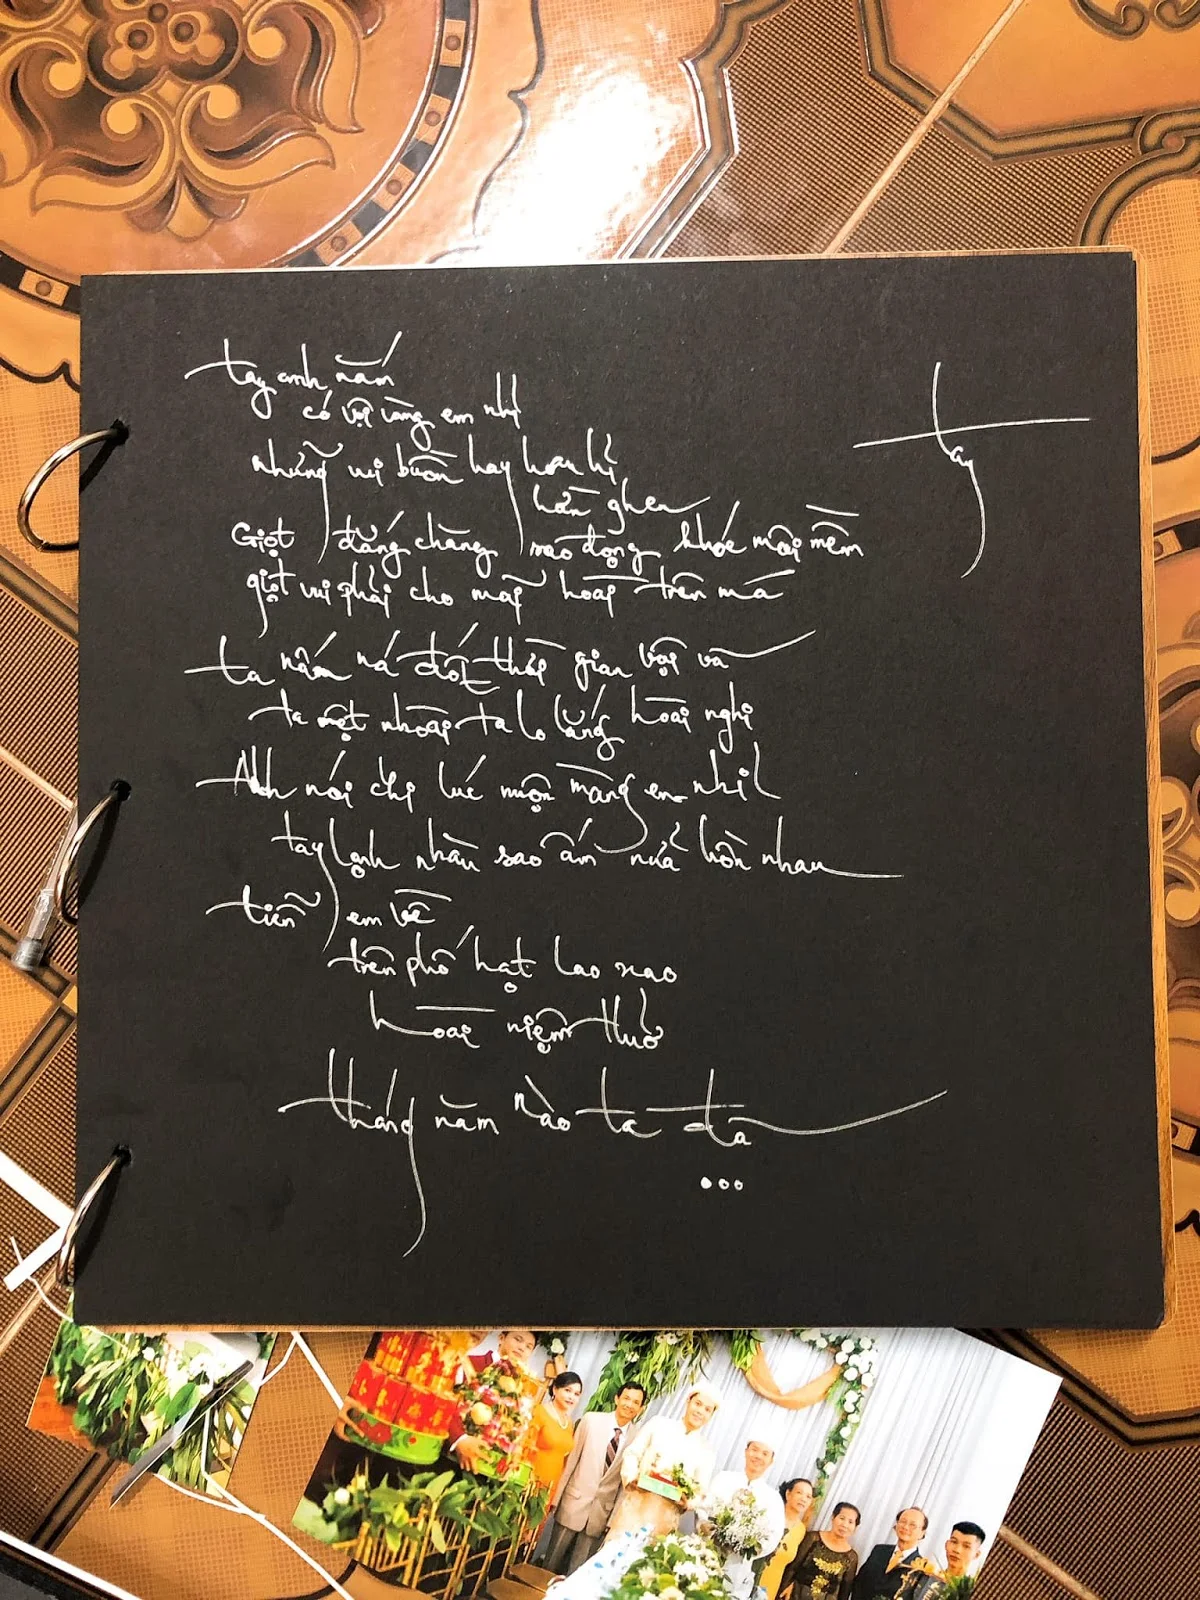 tay
tay anh nắm
có vội vàng em nhỉ
những vui buồn hay hoan hỉ
hờn ghen
Giọt đắng chẳng xao động khóc mãi mềm
giọt vui phải cho mãi hoài trên má
ta nấn ná đốt thời gian vội vã
ta mệt nhoài ta lo lắng hoài nghi
Anh nói chi lúc muộn màng em nhỉ
tay lạnh nhàu sao ấm nửa hồn nhau
tiễn em về
trên phố hạt lao xao
hoài niệm thuở
tháng năm nào ta đã
...